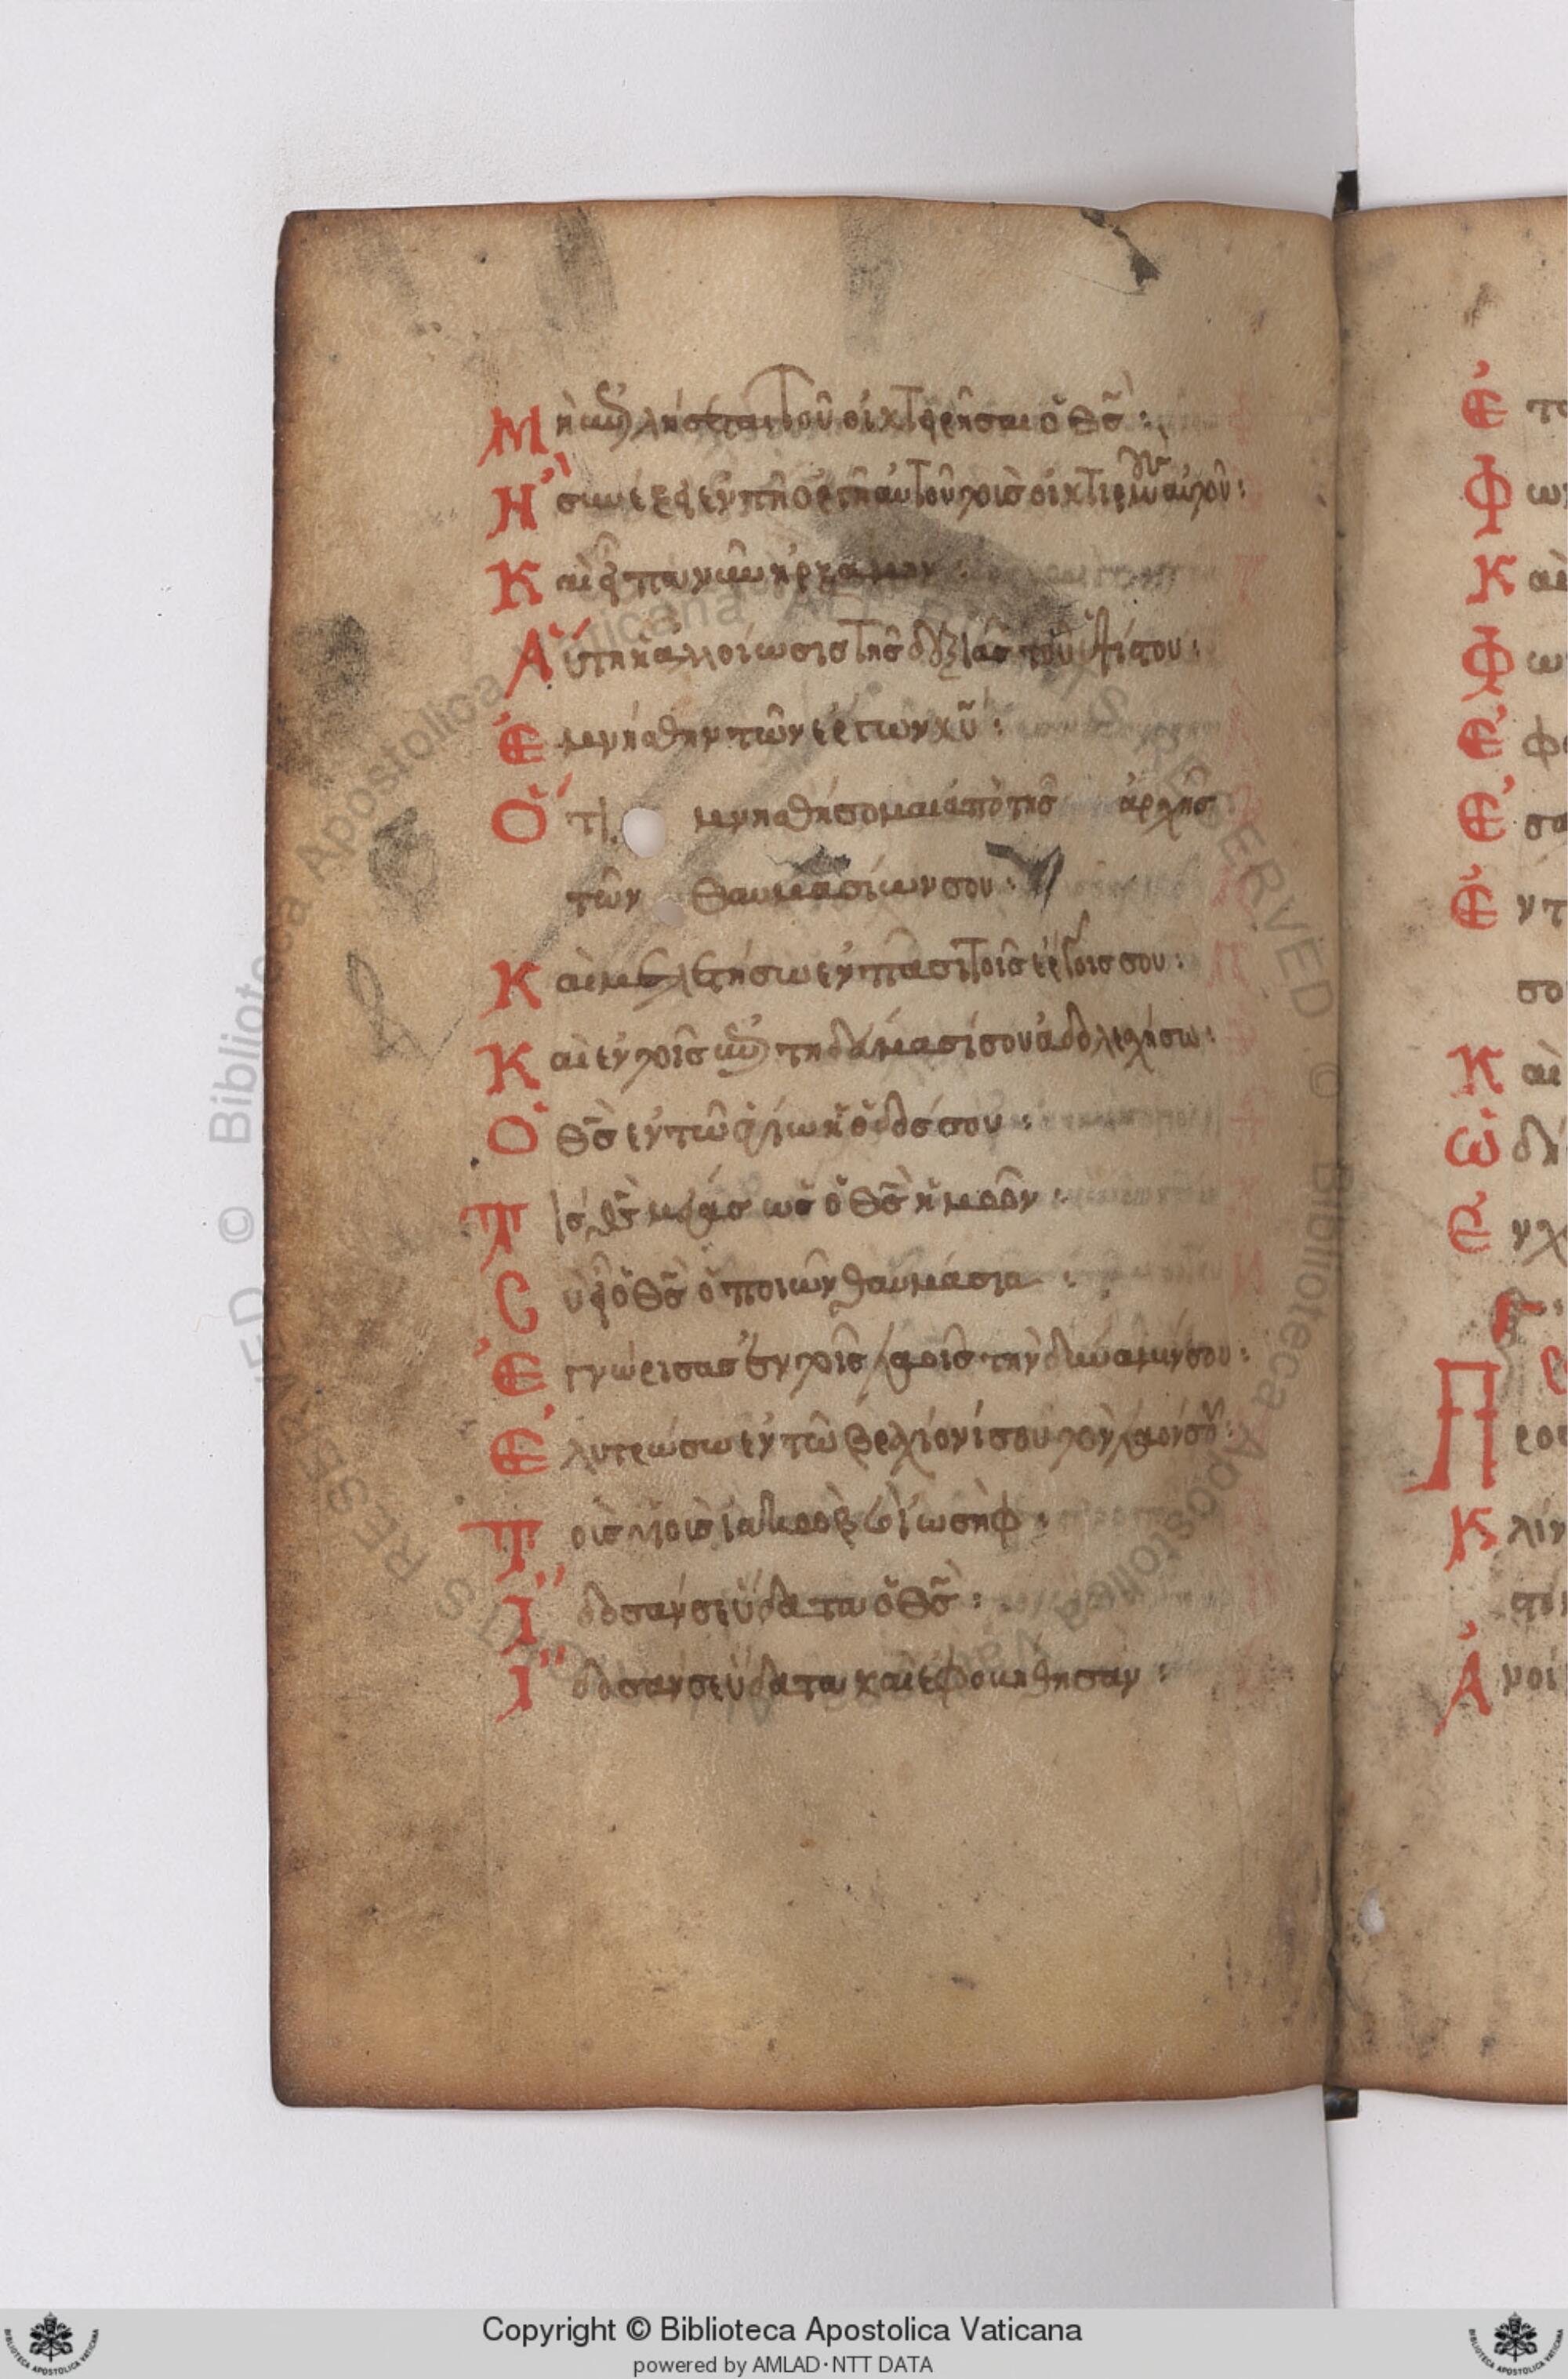 Μὴ ἐπιλήσεται τοῦ οἰκτειρῆσαι ὁ θς̅:
Ἢ συνέξει ἐν τῆ ὀργῆ αὐτοῦ τοὺς οἰκτιρμοὺς αὐτοῦ:
Καὶ εἶπα νῦν ἠρξάμην:
Αὕτη ἡ ἀλλοίωσις τῆς δεξιᾶς τοῦ ὑψίστου:
Ἐμνήσθην τῶν ἔργων κυ̅:
Ὅτι μνησθήσομαι ἀπὸ τῆς ἀρχῆς
τῶν θαυμασίων σου:
Καὶ μελετήσω ἐν πᾶσι τοῖς ἔργοις σου:
Καὶ ἐν τοῖς ἐπιτηδεύμασί σου ἀδολεσχήσω:
Ὁ θς̅ ἐν τῶ ἁγίω ἡ ὁδός σου:
Τίς θς̅ μέγας ὡς ὁ θς̅ ἡμῶν:
Σὺ εἶ ὁ θς̅ ὁ ποιῶν θαυμάσια:
Ἐγνώρισας ἐν τοῖς λαοῖς τὴν δύναμίν σου:
Ἐλυτρώσω ἐν τῶ βραχίονί σου τὸν λαόν σου:
Τοὺς υἱοὺς ἰακὼβ καὶ ἰωσὴφ:
Ἴδοσάν σε ὕδατα ὁ θς̅:
Ἴδοσάν σε ὕδατα καὶ ἐφοβήθησαν:
Copyright © Biblioteca Apostolica Vaticana
powered by AMLAD·NTT DATA